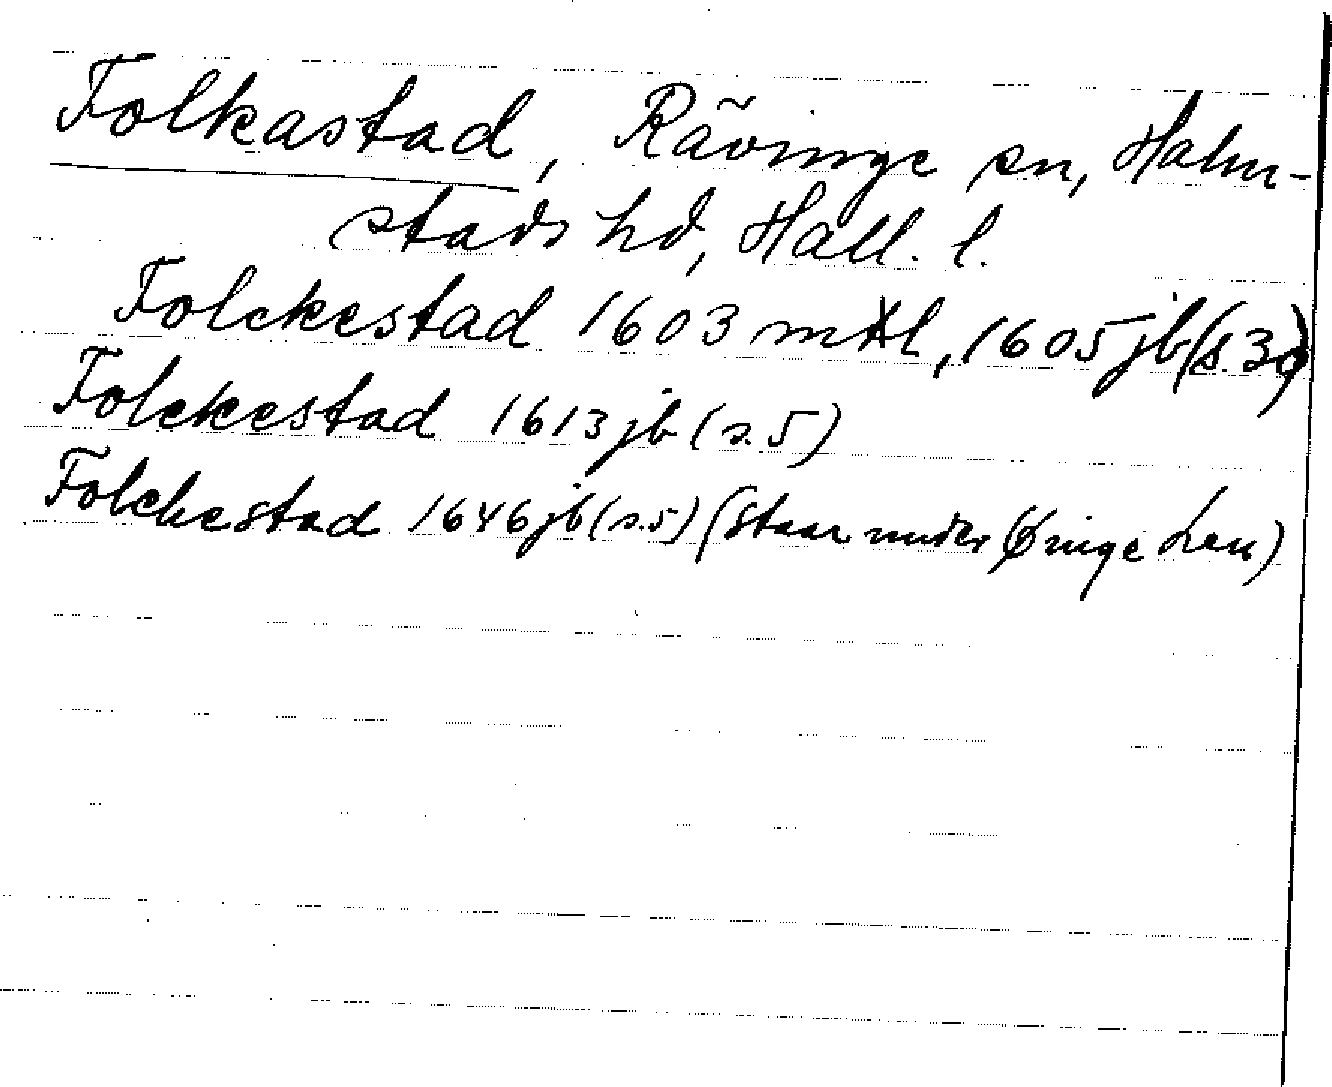 Folkastad, Rävinge sn, Halm-
stads hd, Hall. l.
Folckestad 1603 mtl, 1605 jb (s. 39)
Folckestad 1613 jb (s. 5)
Folckestad 1646 jb (s. 5) (Staar under Øringe Len)